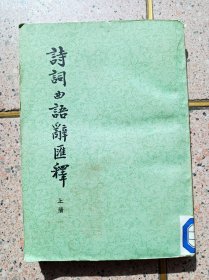 詩詞曲語辭匯釋
上冊